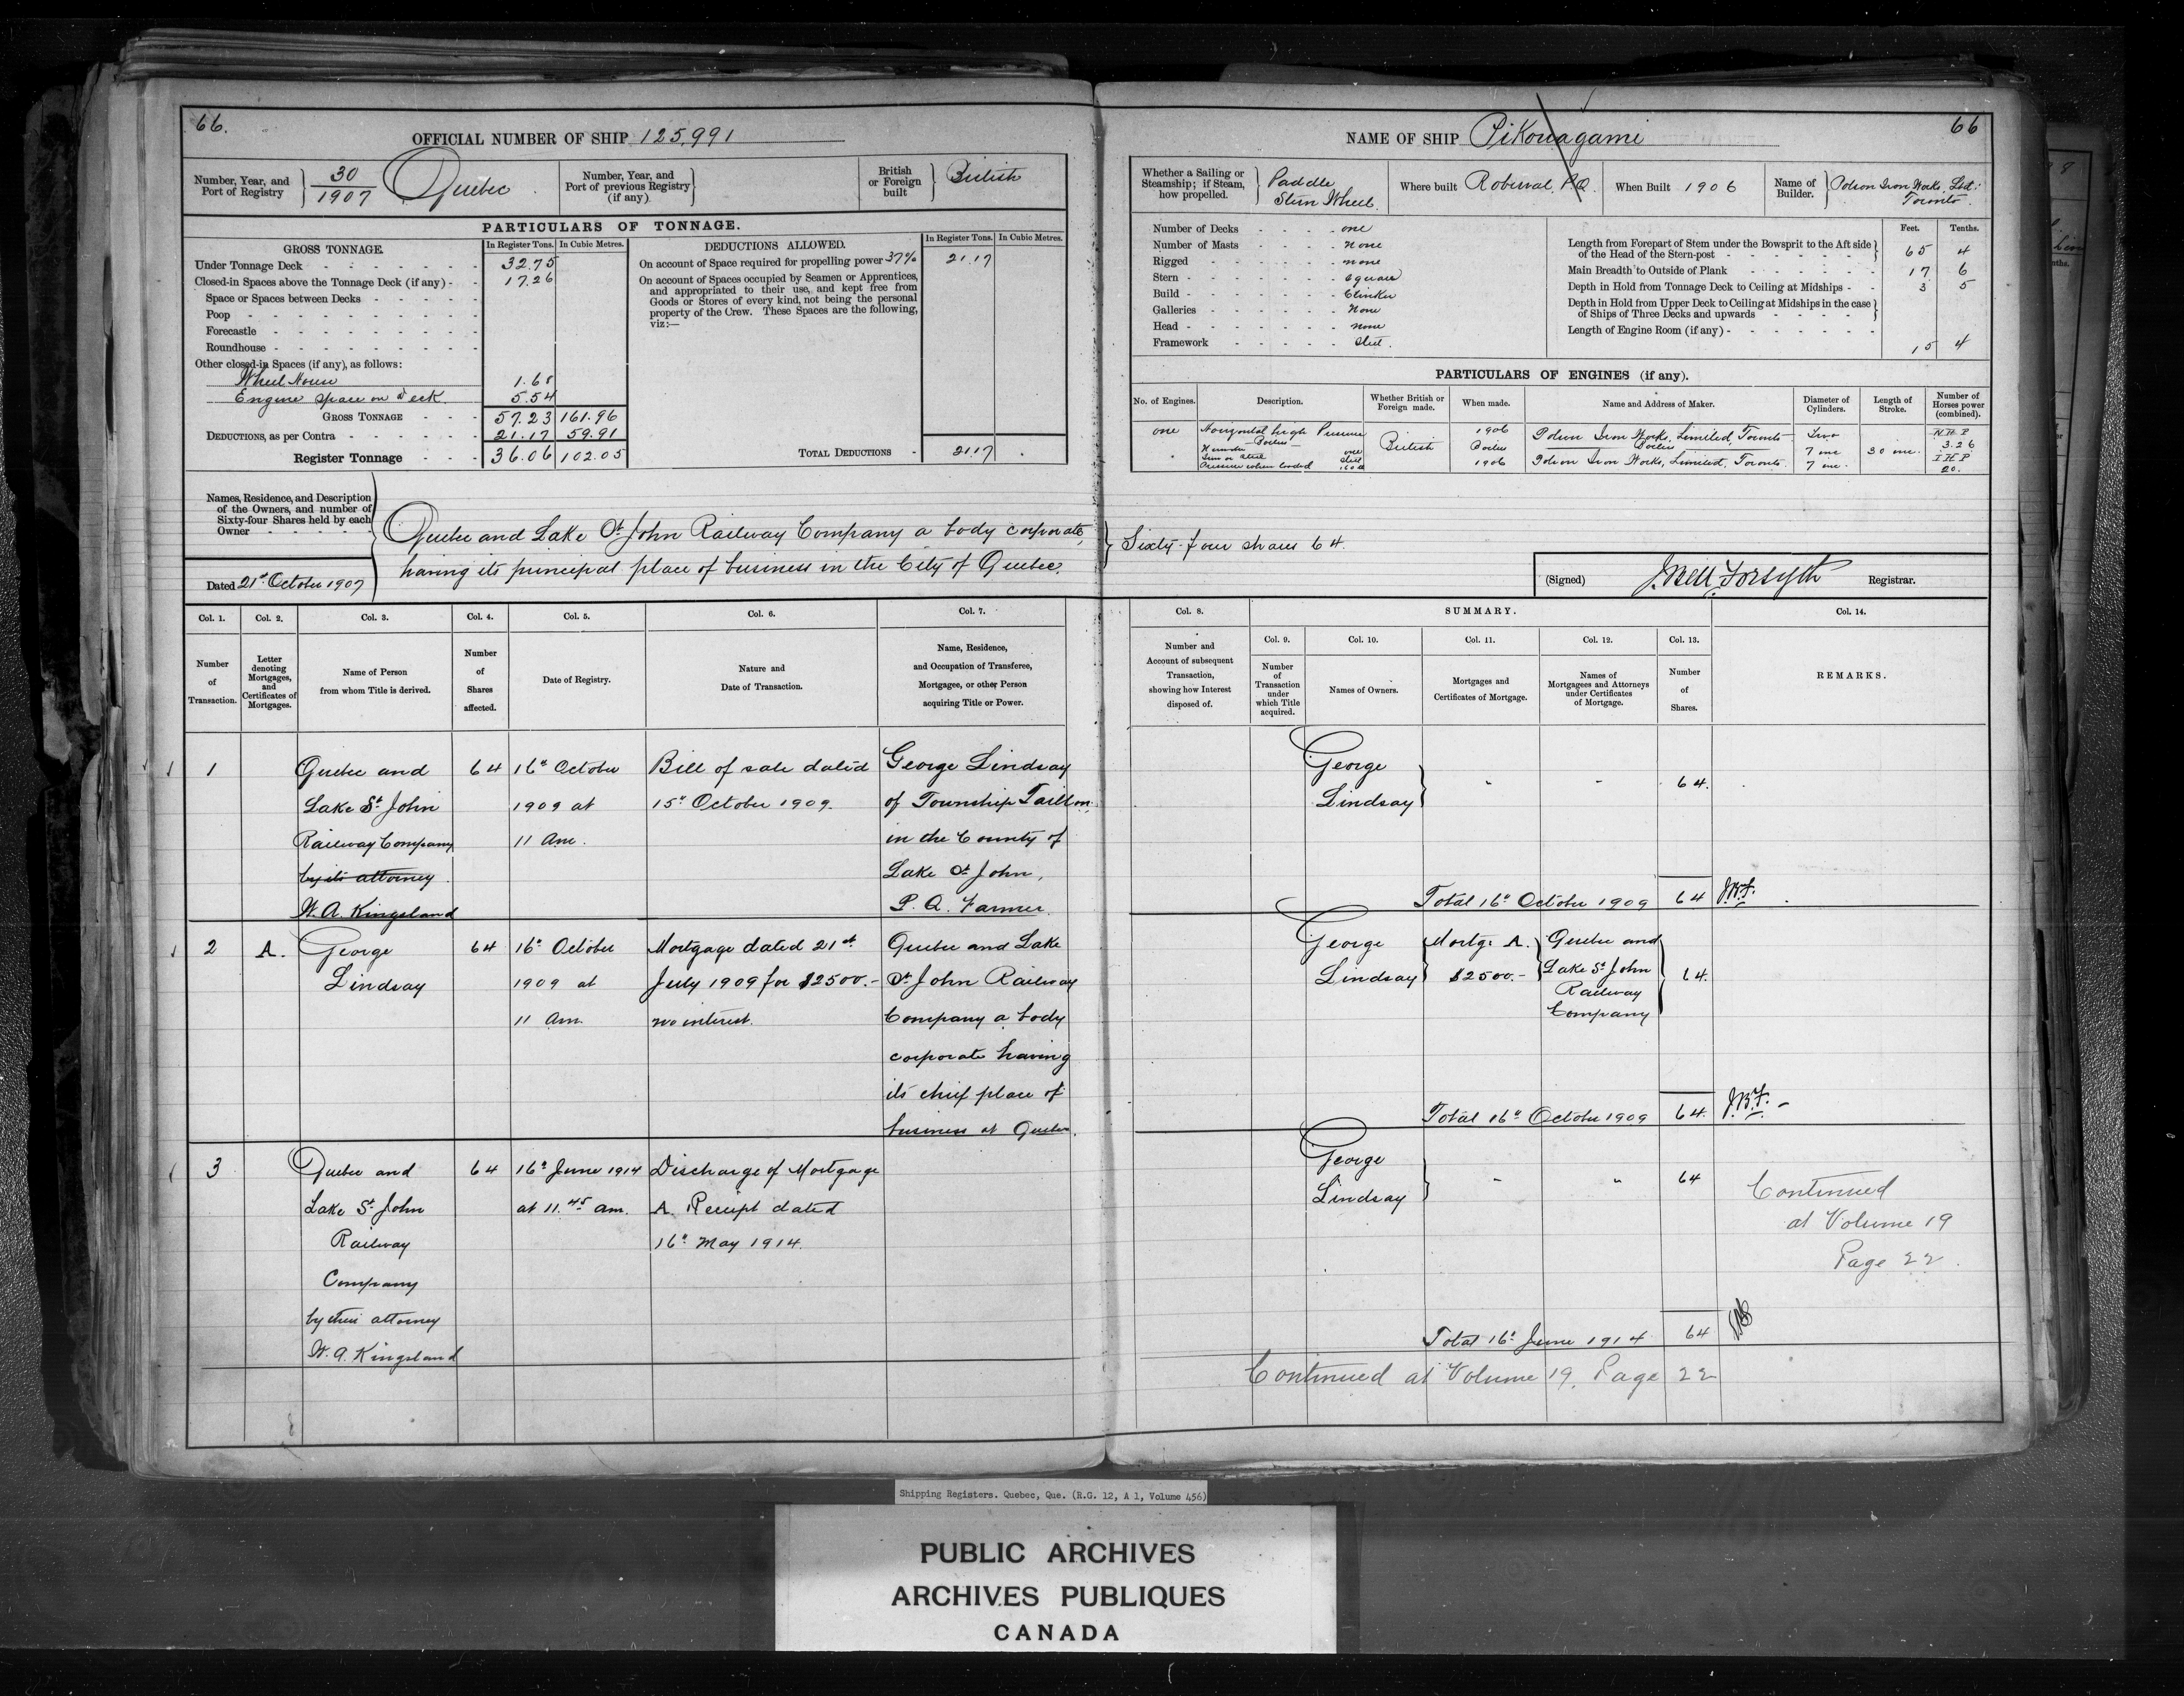 66.
OFFICIAL NUMBER OF SHIP 125,991
Number, Year, and Port of Registry } 30/1907 Quebec
Number, Year, and Port of previous Registry (if any) }
British or Foreign built } British
PARTICULARS OF TONNAGE.
GROSS TONNAGE.
In Register Tons. In Cubic Metres.
Under Tonnage Deck 32.75
Closed-in Spaces above the Tonnage Deck (if any) 17.26
Space or Spaces between Decks
Poop
Forecastle
Roundhouse
Other closed-in Spaces (if any), as follows:
Wheel House 1.68
Engine space on deck 5.54
GROSS TONNAGE 57.23 161.96
DEDUCTIONS, as per Contra 21.17 59.91
Register Tonnage 36.06 102.05
DEDUCTIONS ALLOWED.
In Register Tons. In Cubic Metres.
On account of Space required for propelling power 37% 21.17
On account of Spaces occupied by Seamen or Apprentices,
and appropriated to their use, and kept free from
Goods or Stores of every kind, not being the personal
property of the Crew. These Spaces are the following,
viz:—
TOTAL DEDUCTIONS 21.17
Names, Residence, and Description
of the Owners, and number of
Sixty-four Shares held by each
Owner
Quebec and Lake St. John Railway Company a body corporate,
having its principal place of business in the City of Quebec.
Dated 21st October 1907
Col. 1. Number of Transaction.
Col. 2. Letter denoting Mortgages, and Certificates of Mortgages.
Col. 3. Name of Person from whom Title is derived.
Col. 4. Number of Shares affected.
Col. 5. Date of Registry.
Col. 6. Nature and Date of Transaction.
Col. 7. Name, Residence, and Occupation of Transferee, Mortgagee, or other Person acquiring Title or Power.
1 Quebec and 64 16th October Bill of sale dated George Lindsay
Lake St. John 1909 at 15th October 1909. of Township Taillon,
Railway Company 11 Am. in the County of
by its attorney Lake St. John,
W. A. Kingsland P. Q. Farmer.
2 A. George 64 16th October Mortgage dated 21st Quebec and Lake
Lindsay 1909 at July 1909 for $2500.- St. John Railway
11 Am. no interest. Company a body
corporate having
its chief place of
business at Quebec.
3 Quebec and 64 16th June 1914 Discharge of Mortgage
Lake St. John at 11.45 am. A. Receipt dated
Railway 16th May 1914.
Company
by their attorney
W. A. Kingsland
NAME OF SHIP Pikouagami
66
Whether a Sailing or Steamship; if Steam, how propelled. } Paddle Stern Wheel.
Where built Roberval, P.Q.
When Built 1906
Name of Builder. } Polson Iron Works, Ltd. Toronto.
Number of Decks one
Number of Masts None
Rigged none
Stern Square
Build Clinker
Galleries None
Head none
Framework Steel.
Feet. Tenths.
Length from Forepart of Stem under the Bowsprit to the Aft side of the Head of the Stern-post 65 4
Main Breadth to Outside of Plank 17 6
Depth in Hold from Tonnage Deck to Ceiling at Midships 3 5
Depth in Hold from Upper Deck to Ceiling at Midships in the case of Ships of Three Decks and upwards
Length of Engine Room (if any) 15 4
PARTICULARS OF ENGINES (if any).
No. of Engines. Description. Whether British or Foreign made. When made. Name and Address of Maker. Diameter of Cylinders. Length of Stroke. Number of Horses power (combined).
one Horizontal high Pressure British 1906 Polson Iron Works, Limited, Toronto Two N H P
Boilers Boilers Boilers 7 ins 30 ins. 3.26
Number one
Iron or Steel Steel I H P
Pressure when loaded 160 lb 1906 Polson Iron Works, Limited, Toronto. 7 ins. 20.
Sixty-four shares 64.
(Signed) J. Bell Forsyth Registrar.
Col. 8. Number and Account of subsequent Transaction, showing how Interest disposed of.
SUMMARY.
Col. 9. Number of Transaction under which Title acquired.
Col. 10. Names of Owners.
Col. 11. Mortgages and Certificates of Mortgage.
Col. 12. Names of Mortgagees and Attorneys under Certificates of Mortgage.
Col. 13. Number of Shares.
Col. 14. REMARKS.
George
Lindsay } - - 64.
Total 16th October 1909 64 J.B.F.
George Mortge. A. Quebec and
Lindsay $2500.- Lake St. John 64.
Railway
Company
Total 16th October 1909 64. J.B.F.
George
Lindsay } - " 64
Continued
at Volume 19
Page 22.
Total 16th June 1914 64
Continued at Volume 19, Page 22
Shipping Registers. Quebec, Que. (R.G. 12, A 1, Volume 456)
PUBLIC ARCHIVES
ARCHIVES PUBLIQUES
CANADA